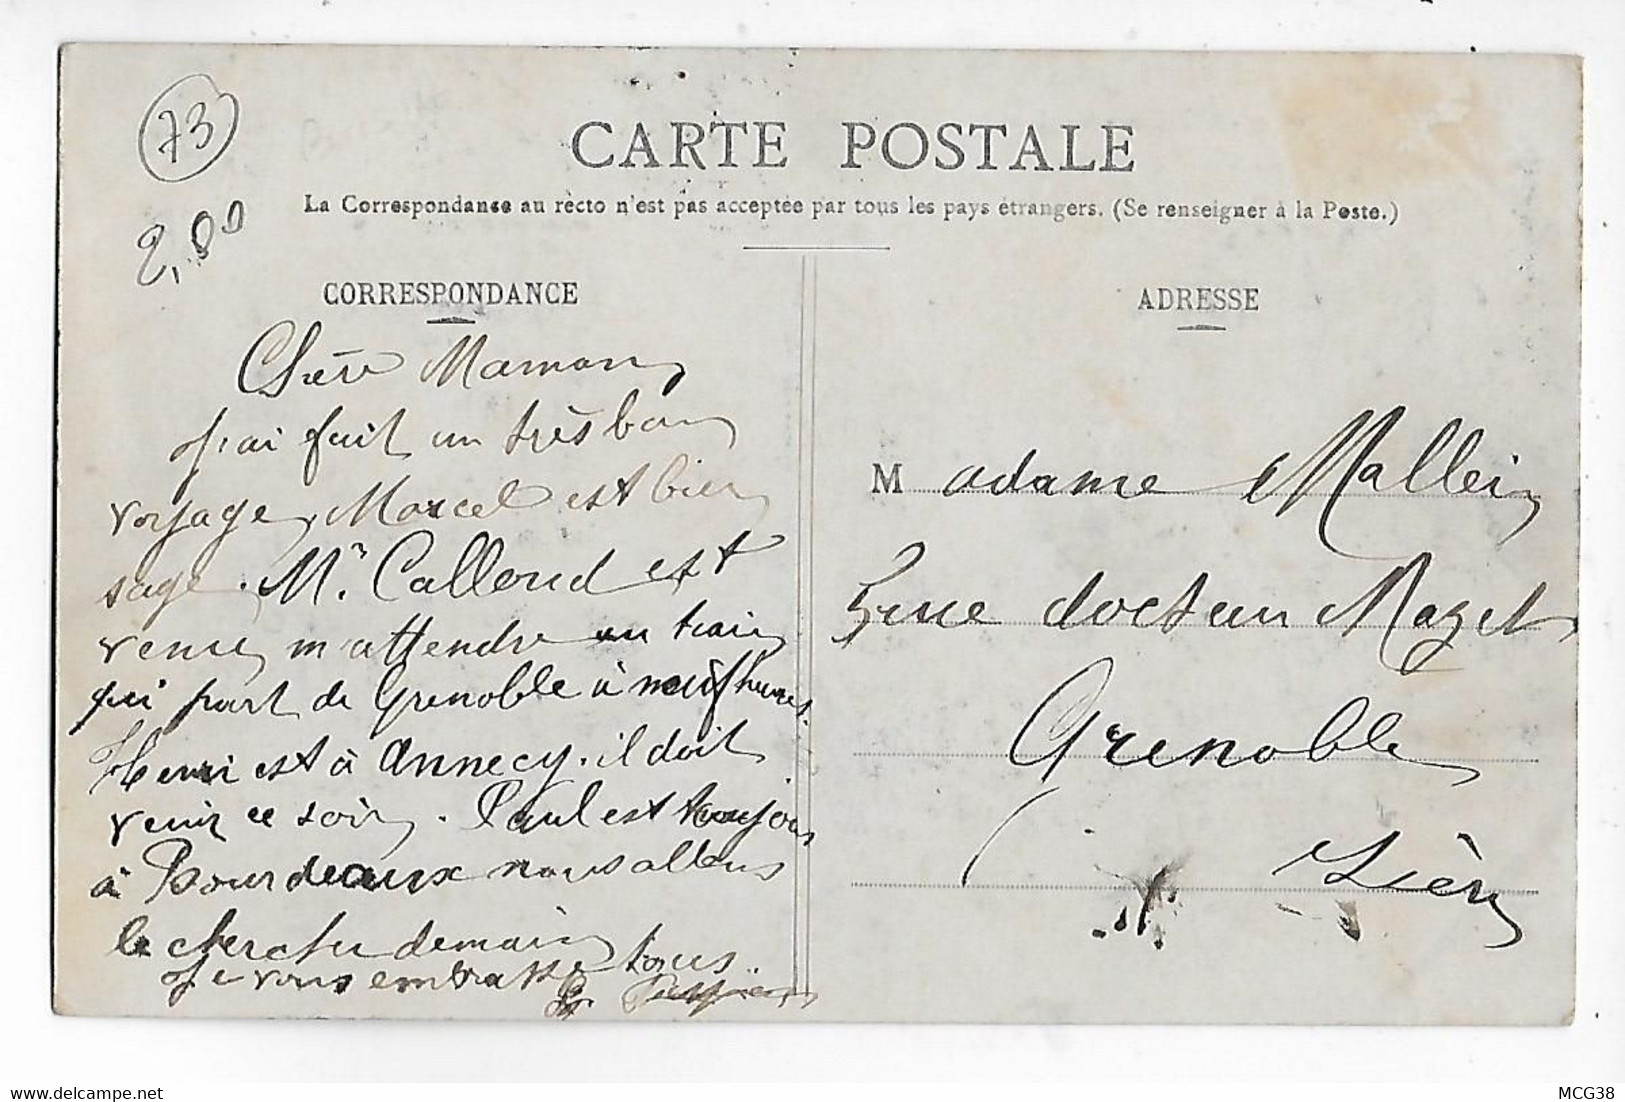 73
2,00
CARTE POSTALE
La Correspondance au recto n'est pas acceptée par tous les pays étrangers. (Se renseigner à la Poste.)
CORRESPONDANCE
Chère Maman
j'ai fait un très bon
voyage, Marcel est bien
sage. Mr. Callond est
venu m'attendre au train
qui part de Grenoble à neuf heures.
Henri est à Annecy. il doit
venir ce soir. Paul est toujours
à Bourdeaux nous allons
le chercher demain
Je vous embrasse tous.
ADRESSE
Madame Mallein
5 rue docteur Mazet
Grenoble
Isère
MCG38